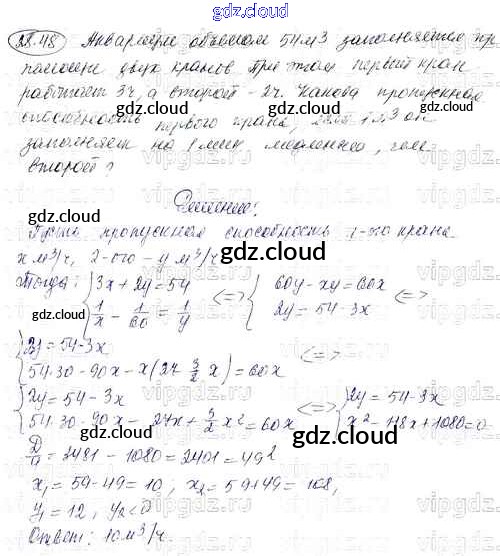 gdz.cloud
38.48 Аквариум объемом 54м3 заполняется при
помощи двух кранов При этом первый кран
работает 3ч, а второй - 2ч. Какова пропускная
способность первого крана, если 1м3 он
заполняет на 1 мин медленнее, чем
второй?
Решение:
Пусть пропускная способность 1-ого крана
x м3/ч, 2-ого - y м3/ч
Тогда: { 3x + 2y = 54 <=> { 60y - xy = 60x <=>
1/x - 1/60 = 1/y 2y = 54 - 3x
{ 2y = 54 - 3x <=>
54·30 - 90x - x(27 3/2 x) = 60x
{ 2y = 54 - 3x <=> { 2y = 54 - 3x
54·30 - 90x - 27x + 3/2 x² = 60x x² - 118x + 1080 = 0
D/4 = 3481 - 1080 = 2401 = 49²
x₁ = 59 - 49 = 10; x₂ = 59 + 49 = 108,
y₁ = 12, y₂ < 0
Ответ: 10 м3/ч.